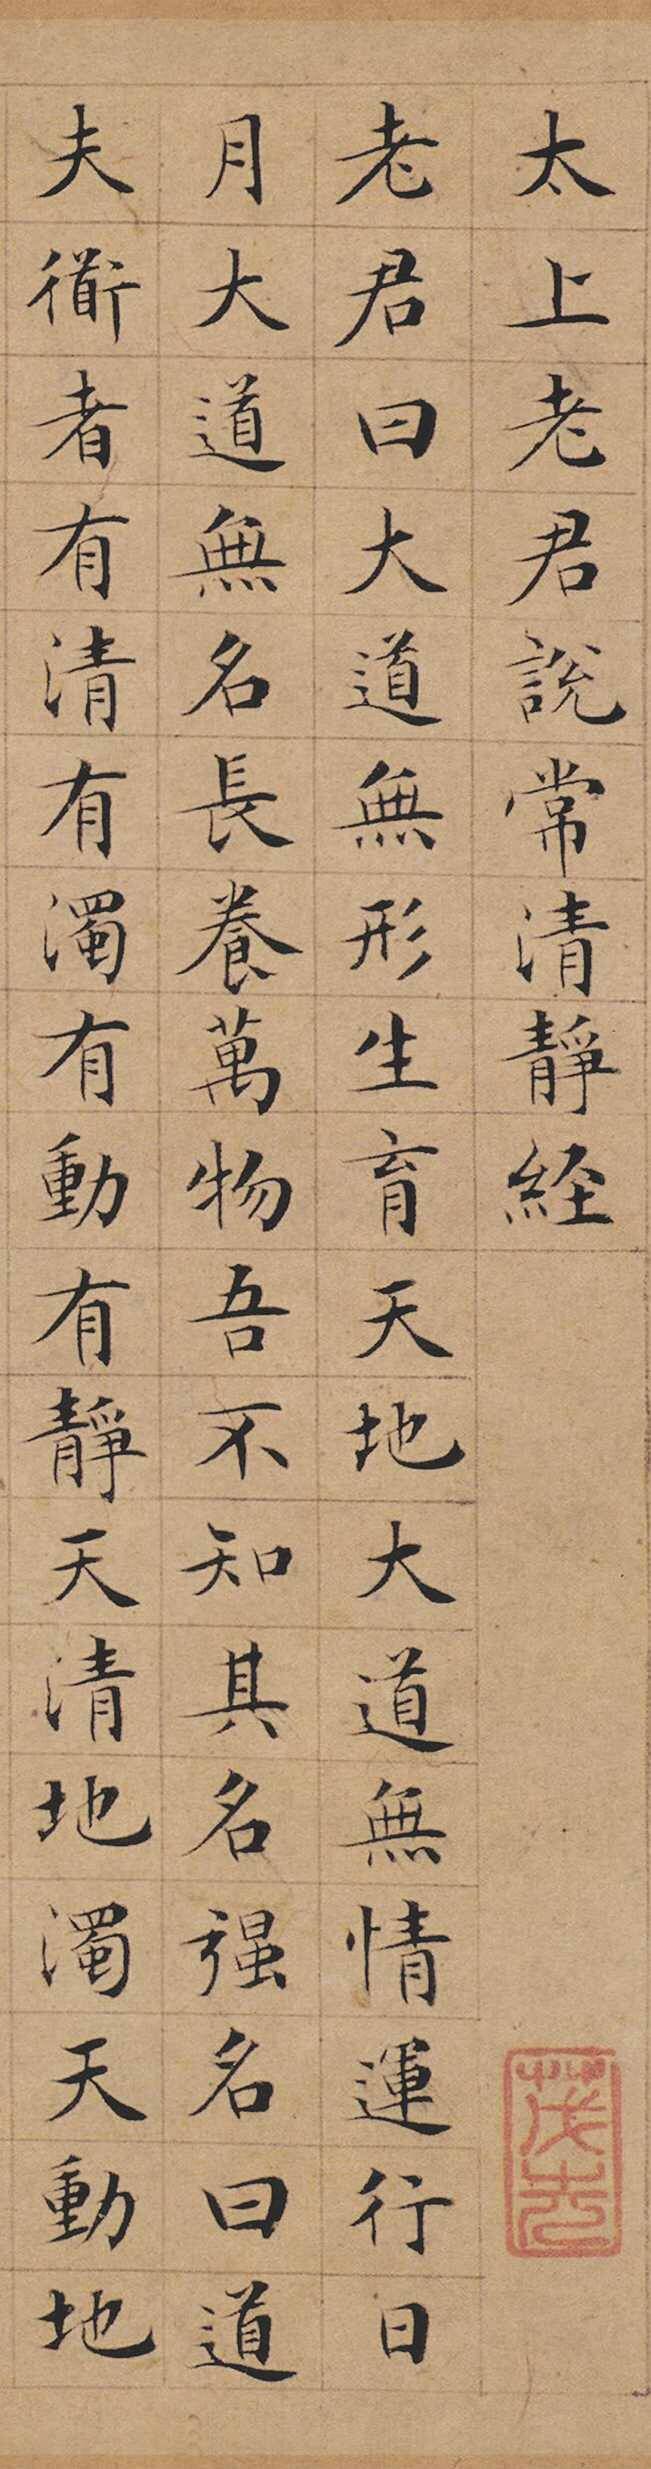 太上老君說常清靜経
老君曰大道無形生育天地大道無情運行日
月大道無名長養萬物吾不知其名强名曰道
夫衟者有清有濁有動有靜天清地濁天動地